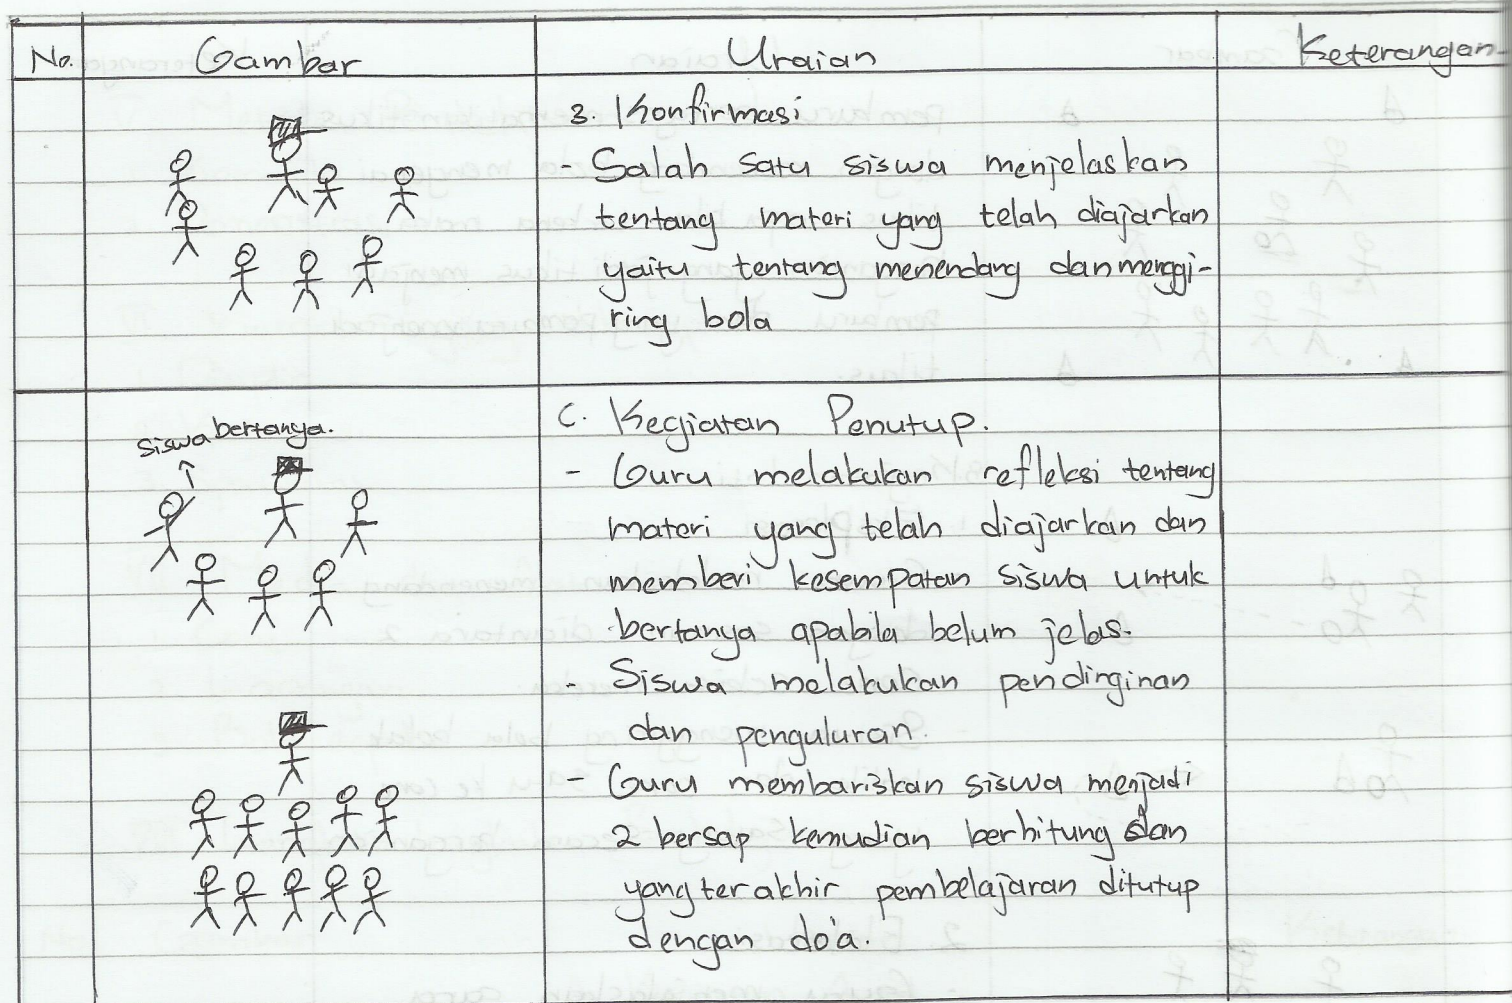 No. Gambar Uraian Keterangan
3. Konfirmasi
- Salah satu siswa menjelaskan
tentang materi yang telah diajarkan
yaitu tentang menendang dan menggi-
ring bola
siswa bertanya.
C. Kegiatan Penutup.
- Guru melakukan refleksi tentang
materi yang telah diajarkan dan
memberi kesempatan siswa untuk
bertanya apabila belum jelas.
- Siswa melakukan pendirginan
dan penguluran.
- Guru membariskan siswa menjadi
2 bersap kemudian berhitung dan
yang terakhir pembelajaran ditutup
dengan do'a.